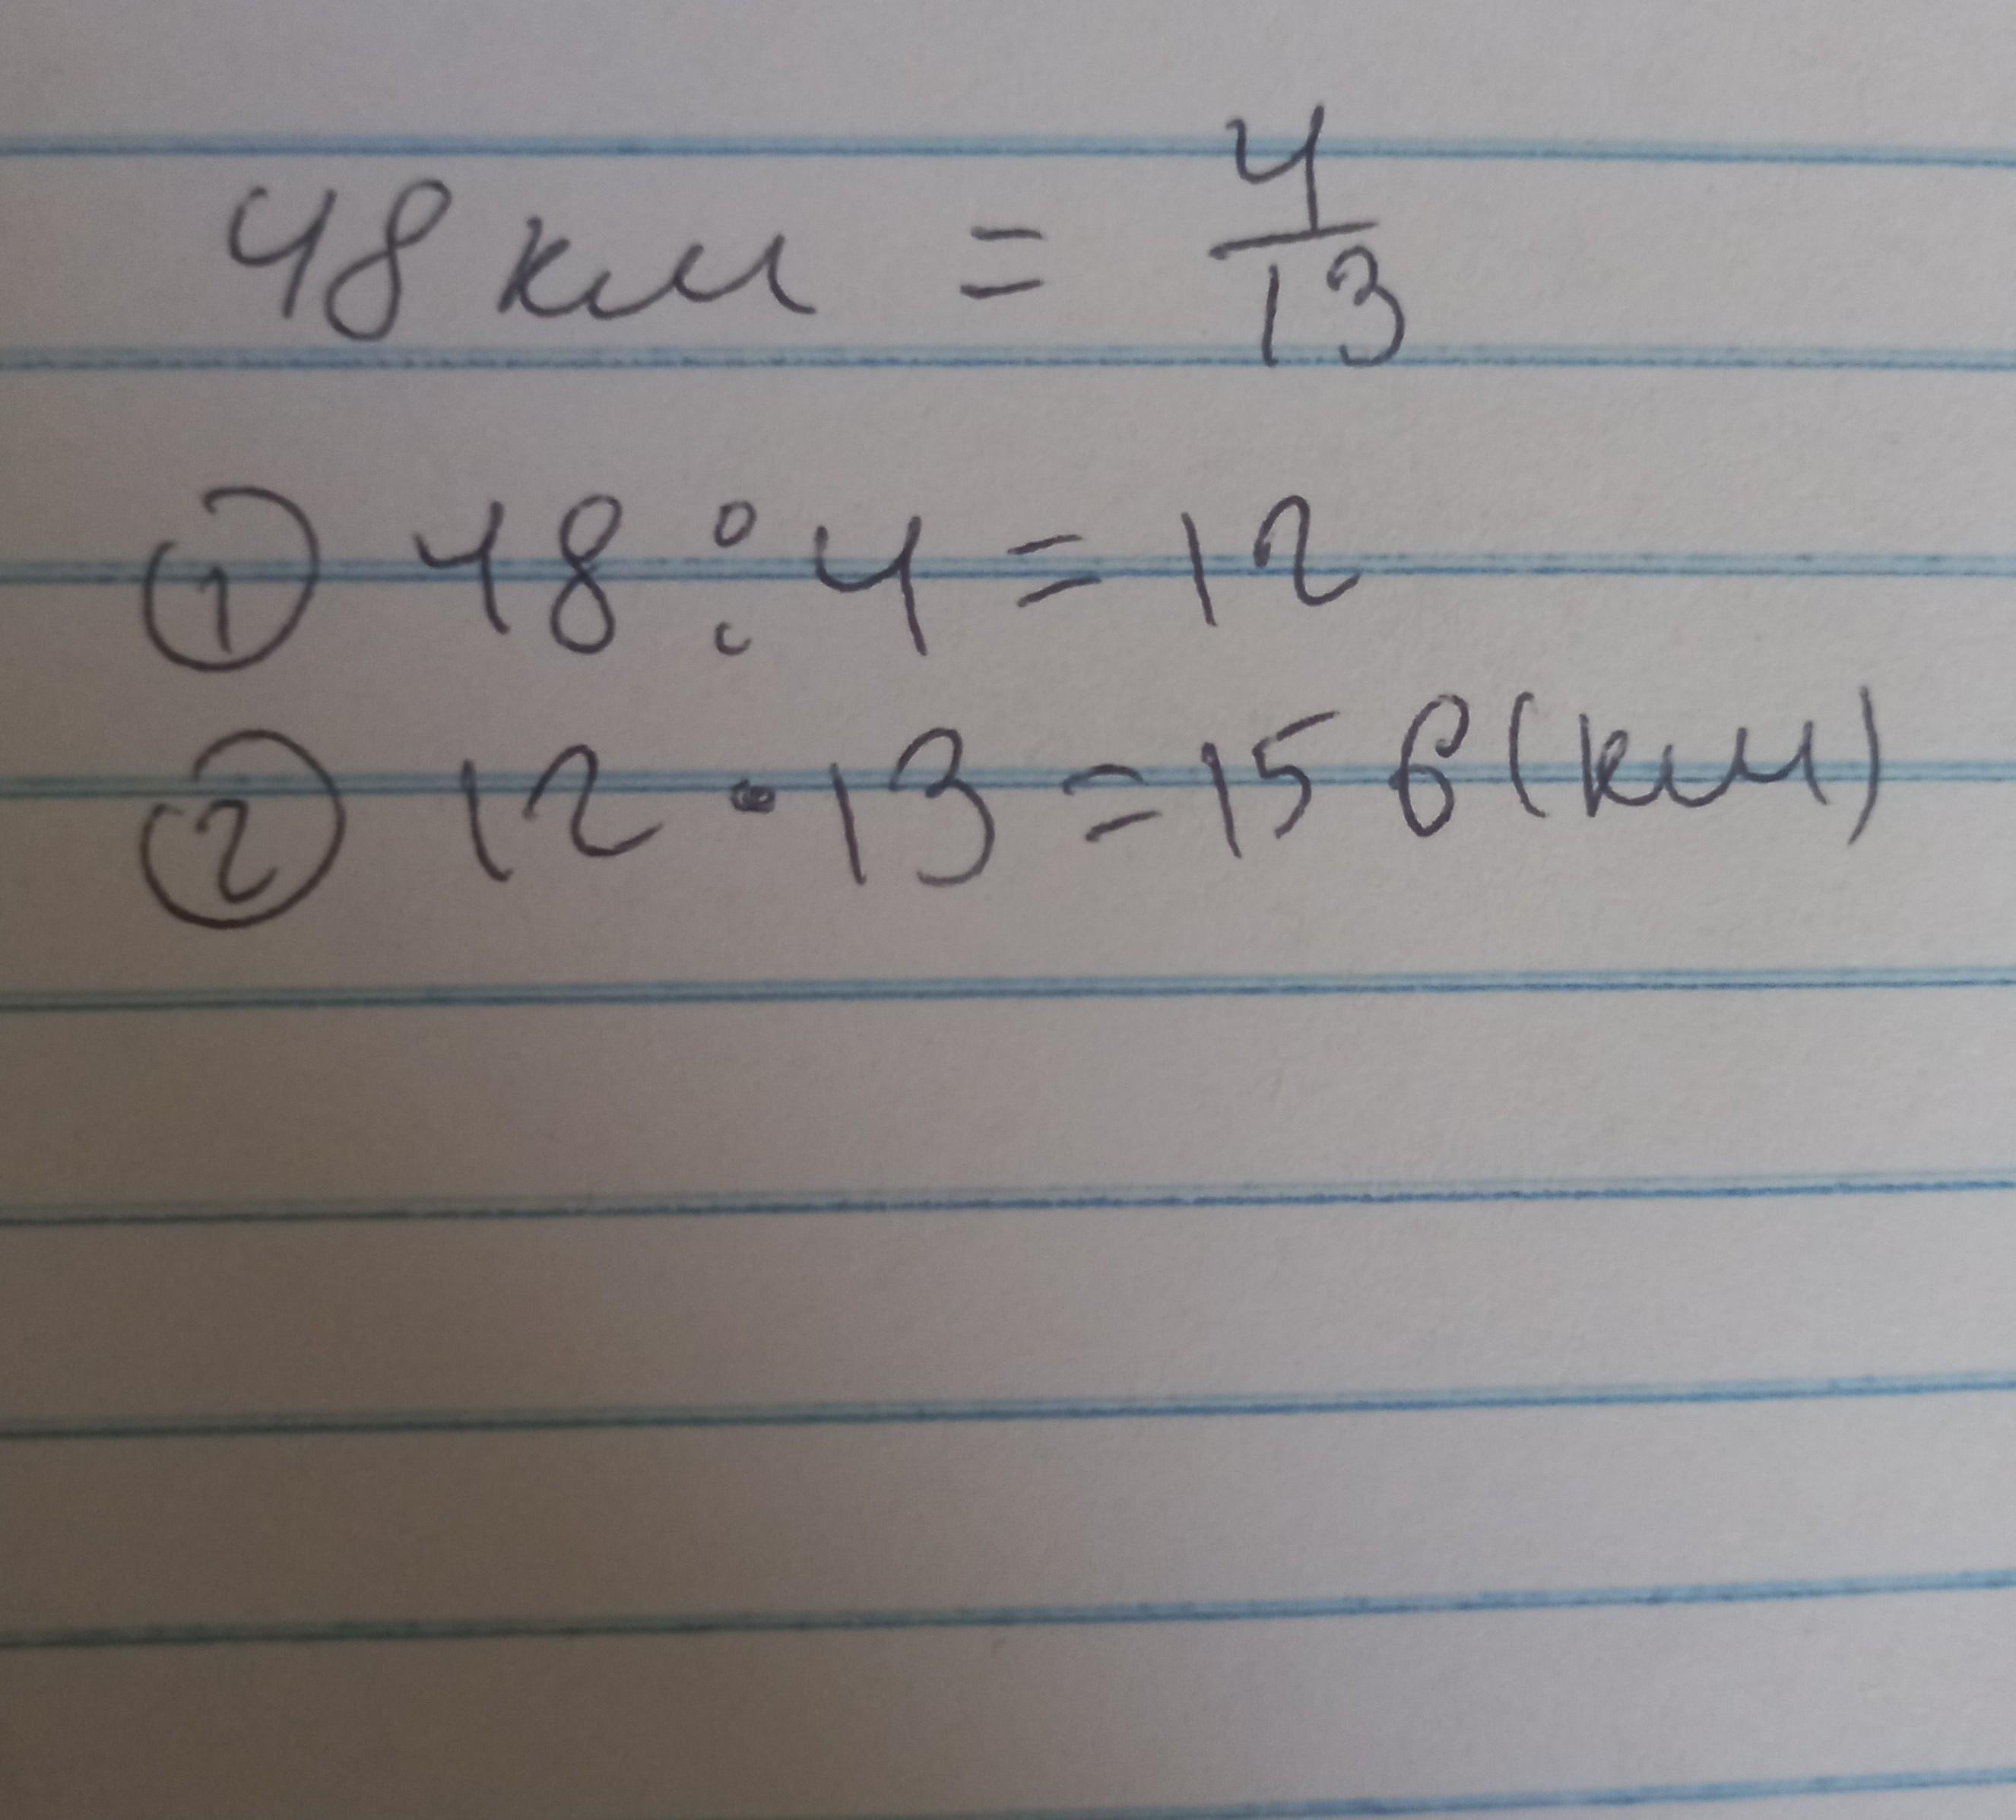 48 км = 4/13
① 48 : 4 = 12
② 12 · 13 = 156 (км)